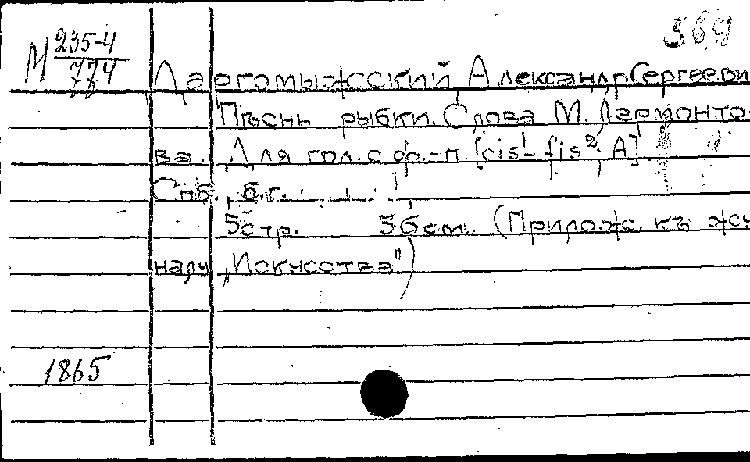 369
М 235-4
774
Даргомыжский, Александр Сергееви
Пѣснь рыбки. Слова М. Лермонто-
ва. Для гол. с ф.-п. [cis¹-fis², A]
Спб., б.г.
5 стр. 36 см. (Прилож. къ жур
налу „Искусства")
1865